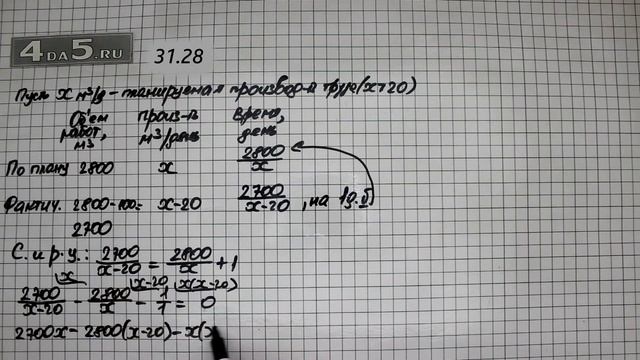 4DA5.RU 31.28
Пусть x м³/д - планируемая производ-ть труда (x>20)
Объем работ, м³ произ-ть м³/день Время, день
По плану 2800 x 2800/x
Фактич. 2800-100= x-20 2700/x-20, на 1д.
2700
С. и р. у.: 2700/x-20 = 2800/x + 1
2700/x-20 - 2800/x - 1/1 = 0
2700x - 2800(x-20) - x(x